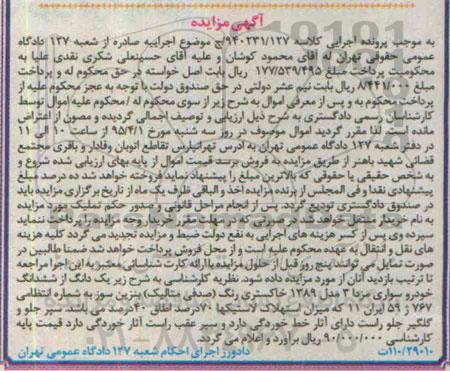 آگهی مزایده
به موجب پرونده اجرایی کلاسه ۹۴۰۲۳۱/۱۲۷ج موضوع اجراییه صادره از شعبه ۱۲۷ دادگاه
عمومی حقوقی تهران له آقای محمود کوشان و علیه آقای حسینعلی شکری نقدی علیا به
محکومیت پرداخت مبلغ ۱۷۷/۵۳۹/۴۹۵ ریال بابت اصل خواسته در حق محکوم له و پرداخت
مبلغ ۸/۴۴۱/۰۰۰ ریال بابت نیم عشر دولتی در حق صندوق دولت با توجه به عجز محکوم علیه از
پرداخت محکوم به و پس از معرفی اموال به شرح زیر از سوی محکوم له / محکوم علیه اموال توسط
کارشناس رسمی دادگستری به شرح ذیل ارزیابی و توصیف اجمالی گردیده و مصون از اعتراض
مانده است. لذا مقرر گردید اموال موصوف در روز سه شنبه مورخ ۹۵/۴/۱ از ساعت ۱۰ الی ۱۱
در دفتر شعبه ۱۲۷ دادگاه عمومی تهران به آدرس تهرانپارس تقاطع اتوبان وفادار و باقری مجتمع
قضائی شهید باهنر از طریق مزایده به فروش برسد قیمت اموال از پایه بهای ارزیابی شده شروع و
به شخص حقیقی یا حقوقی که بالاترین مبلغ را پیشنهاد نماید فروخته خواهد شد ده درصد مبلغ
پیشنهادی نقدا و فی المجلس از برنده مزایده اخذ و الباقی ظرف یک ماه از تاریخ برگزاری مزایده باید
در صندوق دادگستری تودیع گردد. پس از انجام مراحل قانونی و صدور حکم تملیک مورد مزایده
به نام خریدار منتقل خواهد شد در صورتی که در مهلت مقرر خریدار وجه مزایده را پرداخت ننماید
سپرده وی پس از کسر هزینه های اجرایی به نفع دولت ضبط و مزایده تجدید می گردد کلیه هزینه
های نقل و انتقال به عهده محکوم علیه است و از محل فروش پرداخت خواهد شد ضمنا طالبین در
صورت تمایل می توانند پنج روز قبل از حلول مزایده با ارائه کارت شناسائی معتبر به این اجرا مراجعه
تا ترتیب بازدید آنان از مورد مزایده داده شود. نظریه کارشناسی به شرح زیر یک دانگ از ششدانگ
خودرو سواری مزدا ۳ مدل ۱۳۸۹ خاکستری رنگ (صدفی متالیک) بنزین سوز به شماره انتظامی
۷۶۷ ق ۵۹ ایران ۱۱ که میزان استهلاک لاستیکها ۷۰درصد اطاق ۴۰درصد می باشد سپر جلو و
گلگیر جلو راست دارای آثار خط خوردگی دارد و سپر عقب راست آثار خوردگی دارد قیمت پایه
کارشناسی ۹۰/۰۰۰/۰۰۰ ریال برآورد و اعلام می گردد.
۱۱۰/۲۹۰۱۰ت دادورز اجرای احکام شعبه ۱۲۷ دادگاه عمومی تهران